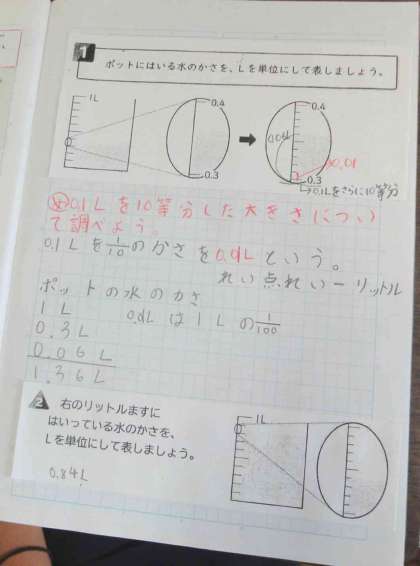 1
ポットにはいる水のかさを、Lを単位にして表しましょう。
1L
0.4
0.3
0.4
0.06
0.01
0.3
0.1Lをさらに10等分
め 0.1Lを10等分した大きさについ
て調べよう。
0.1Lを1/10のかさを0.01Lという。
れい点れいーリットル
ポットの水のかさ
1L
0.01Lは1Lの1/100
0.3L
0.06L
1.36L
2
右のリットルますに
はいっている水のかさを、
Lを単位にして表しましょう。
0.84L
1L